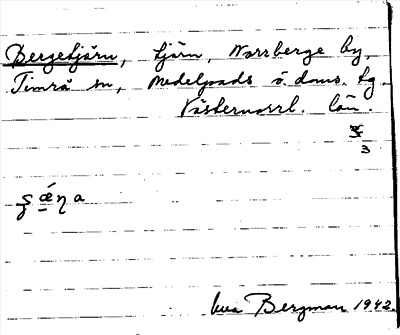 Bergetjärn, tjärn, Norrberge by,
Timrå sn, Medelpads ö. doms. tg.
Västernorrl. län.
3
Eva Bergman 1942